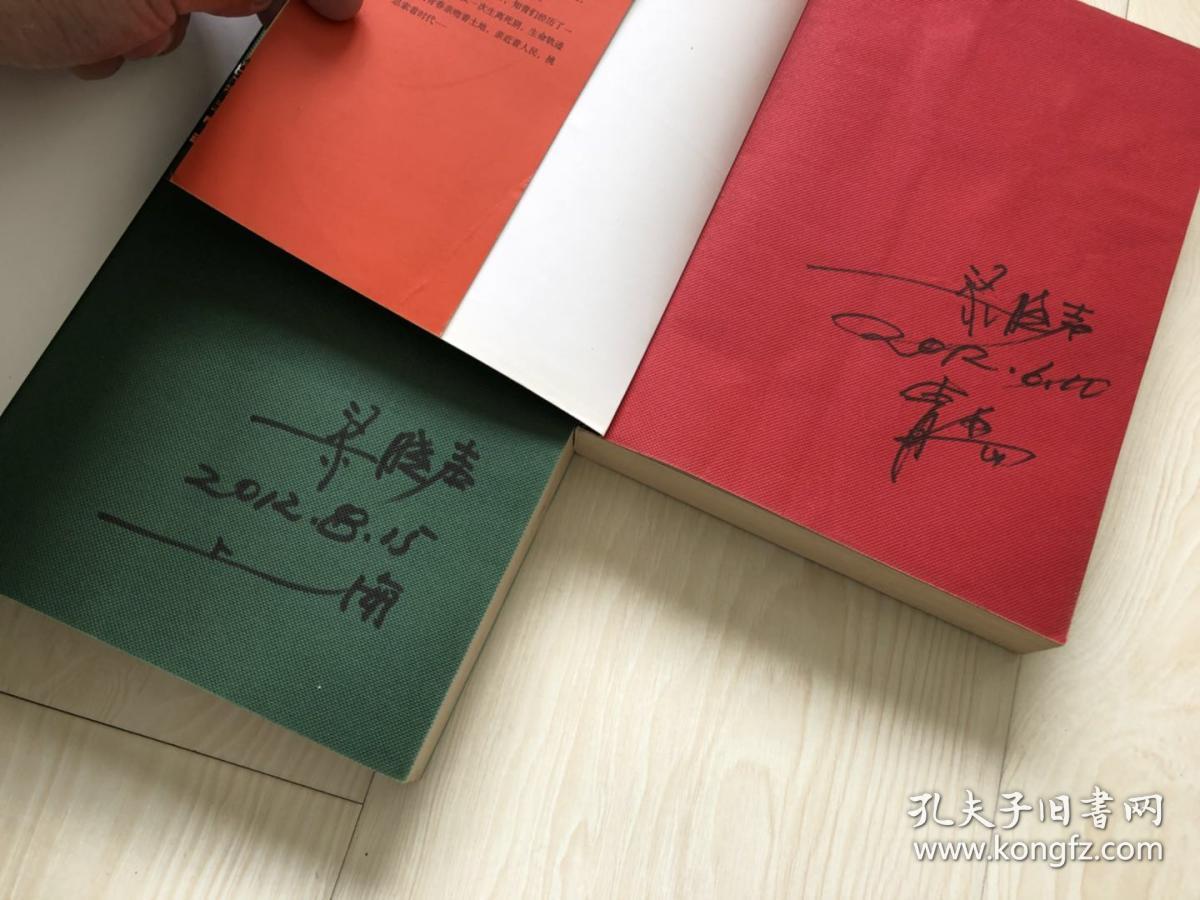 知青们经历了一
次生离死别，生命轨迹
青春亲吻着土地，亲近着人民，桃
追索着时代——
梁晓声
2012.6.10
青岛
梁晓声
2012.8.15
上海
孔夫子旧書网
www.kongfz.com